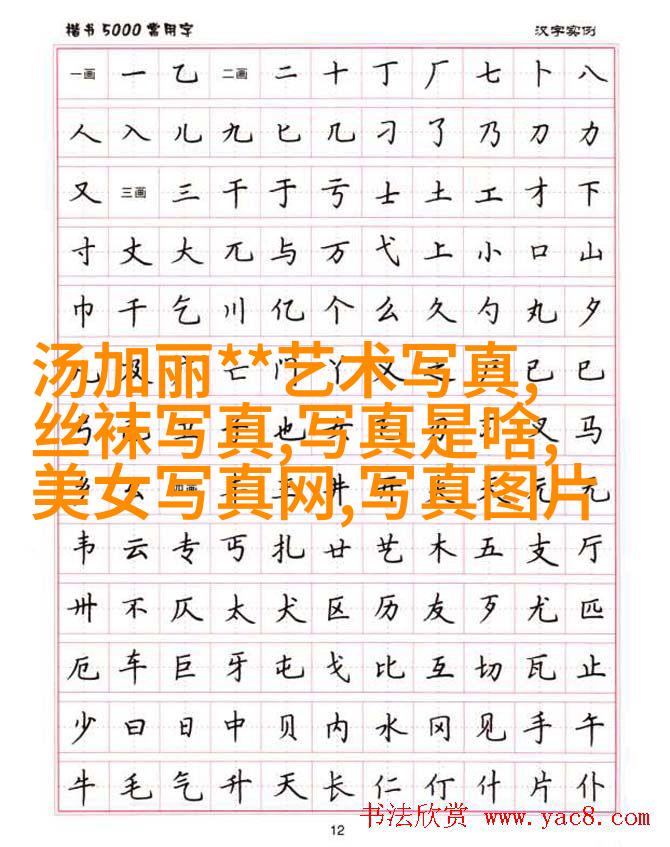 楷书5000常用字 汉字实例
一画 一 乙 二画 二 十 丁 厂 七 卜 八
人 入 儿 九 匕 几 刁 了 乃 刀 力
又 三画 三 干 于 亏 士 土 工 才 下
寸 丈 大 兀 与 万 弋 上 小 口 山
巾 千 乞 川 亿 个 么 久 勺 丸 夕
汤加丽**艺术写真,
广 亡 门 丫 义 之 已 巳
丝袜写真,写真是啥,
也 女 叉 马
美女写真网,写真图片
四画 丰 王 井 开 夫 天 元
韦 云 专 丐 扎 廿 艺 木 五 支 厅
卅 不 仄 太 犬 区 历 友 歹 尤 匹
厄 车 巨 牙 屯 戈 比 互 切 瓦 止
少 曰 日 中 贝 内 水 冈 见 手 午
牛 毛 气 升 夭 长 仁 仃 什 片 仆
书法欣赏 www.yac8.com
12